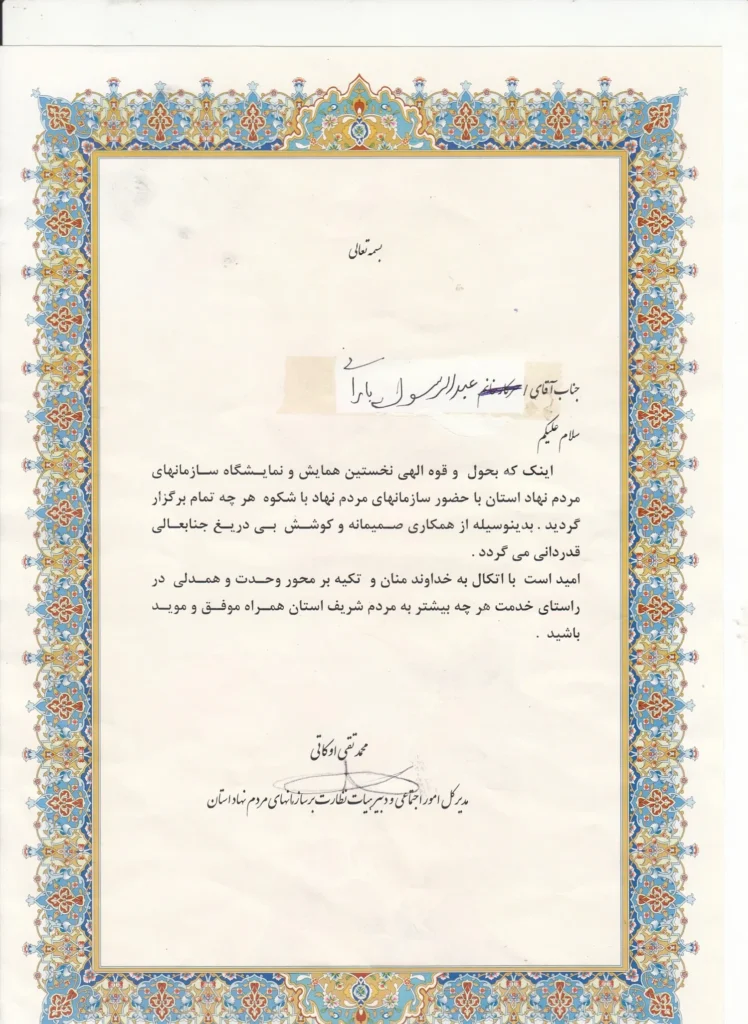 بسمه تعالی
جناب آقای / سرکار خانم عبدالرسول بارانی
سلام علیکم
اینک که بحول و قوه الهی نخستین همایش و نمایشگاه سازمانهای
مردم نهاد استان با حضور سازمانهای مردم نهاد با شکوه هر چه تمام برگزار
گردید . بدینوسیله از همکاری صمیمانه و کوشش بی دریغ جنابعالی
قدردانی می گردد .
امید است با اتکال به خداوند منان و تکیه بر محور وحدت و همدلی در
راستای خدمت هر چه بیشتر به مردم شریف استان همراه موفق و موید
باشید .
محمد تقی اوکاتی
مدیر کل امور اجتماعی و دبیر هیات نظارت بر سازمانهای مردم نهاد استان